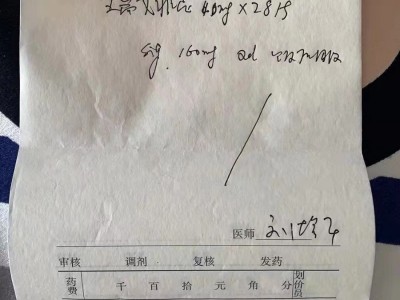 瑞戈非尼 40mg×28片
Sig. 160mg Qd
医师
审核 调剂 复核 发药
药费 千 百 拾 元 角 分 划价员